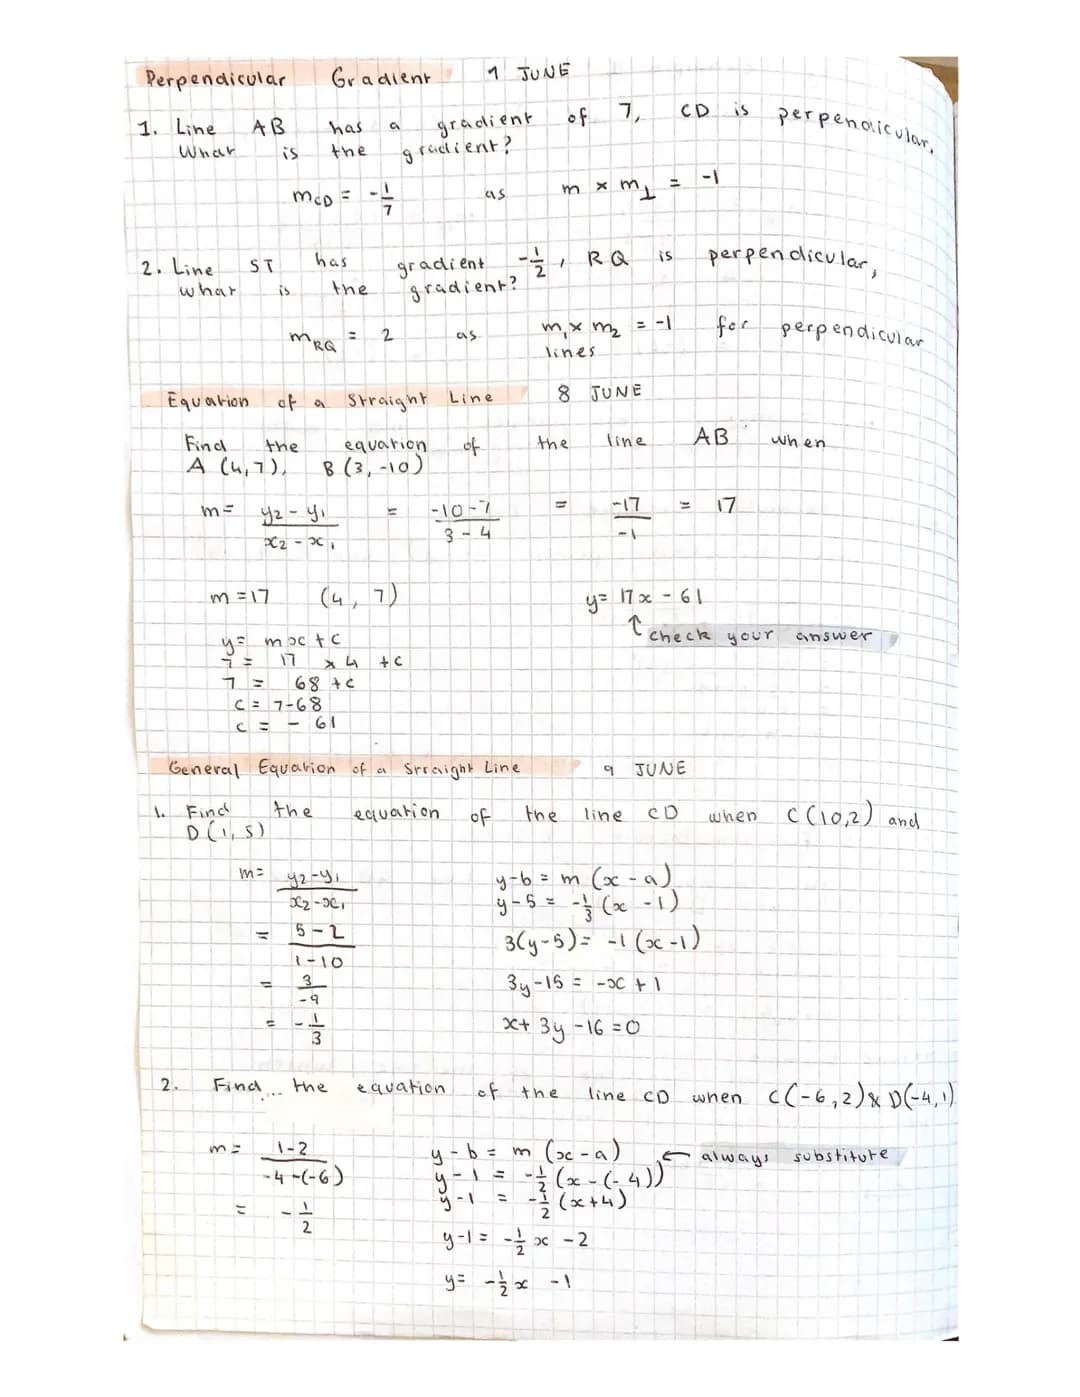 Perpendicular Gradient 1 JUNE
1. Line AB has a gradient of 7, CD is perpendicular.
What is the gradient?
m_CD = -1/7 as m × m⊥ = -1
2. Line ST has gradient -1/2, RQ is perpendicular,
what is the gradient?
m_RQ = 2 as m₁ × m₂ = -1 for perpendicular
lines
Equation of a Straight Line 8 JUNE
Find the equation of the line AB when
A (4,7), B (3,-10)
m = (y₂ - y₁)/(x₂ - x₁) = (-10-7)/(3-4) = -17/-1 = 17
m = 17 (4, 7)
y = mx + c
7 = 17 × 4 + c
7 = 68 + c
c = 7-68
c = - 61
y = 17x - 61
↑ check your answer
General Equation of a Straight Line 9 JUNE
1. Find the equation of the line CD when C (10,2) and
D (1, 5)
m = (y₂-y₁)/(x₂-x₁)
= (5-2)/(1-10)
= 3/-9
= -1/3
y-b = m (x - a)
y-5 = -1/3 (x - 1)
3(y-5) = -1 (x-1)
3y-15 = -x + 1
x + 3y - 16 = 0
2. Find... the equation of the line CD when C(-6,2) & D(-4,1)
m = (1-2)/(-4-(-6))
= -1/2
y - b = m (x - a) ← always substitute
y - 1 = -1/2 (x - (-4))
y - 1 = -1/2 (x+4)
y-1 = -1/2 x - 2
y = -1/2 x - 1